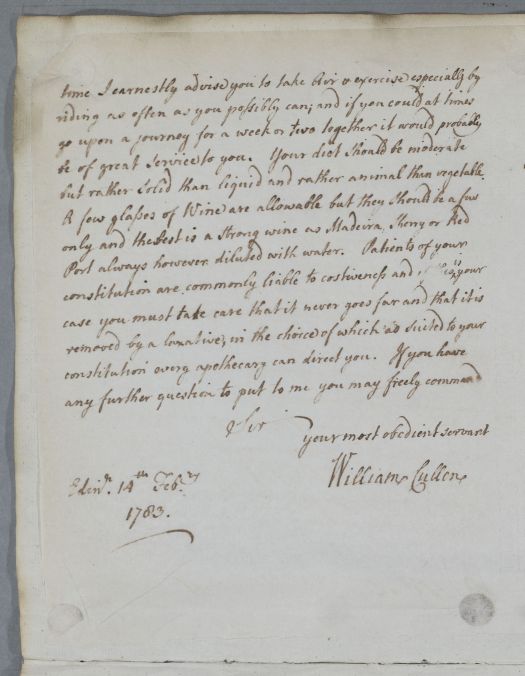 time I earnestly advise you to take Air & exercise especially by
riding as often as you possibly can; and if you could at times
go upon a journey for a week or two together it would probably
be of great Service to you. Your diet Should be moderate
but rather Solid than liquid and rather animal than vegetable.
A few glasses of Wine are allowable but they Should be a few
only and the Best is a Strong wine as Madeira, Sherry or Red
Port always however diluted with water. Patients of your
constitution are commonly liable to costiveness and your
case you must take care that it never goes far and that it is
removed by a laxative, in the choice of which as Suited to your
constitution every apothecary can direct you. If you have
any further question to put to me you may freely command
Sir
your most obedient servant
William Cullen
Edinr. 14th Febry
1783.